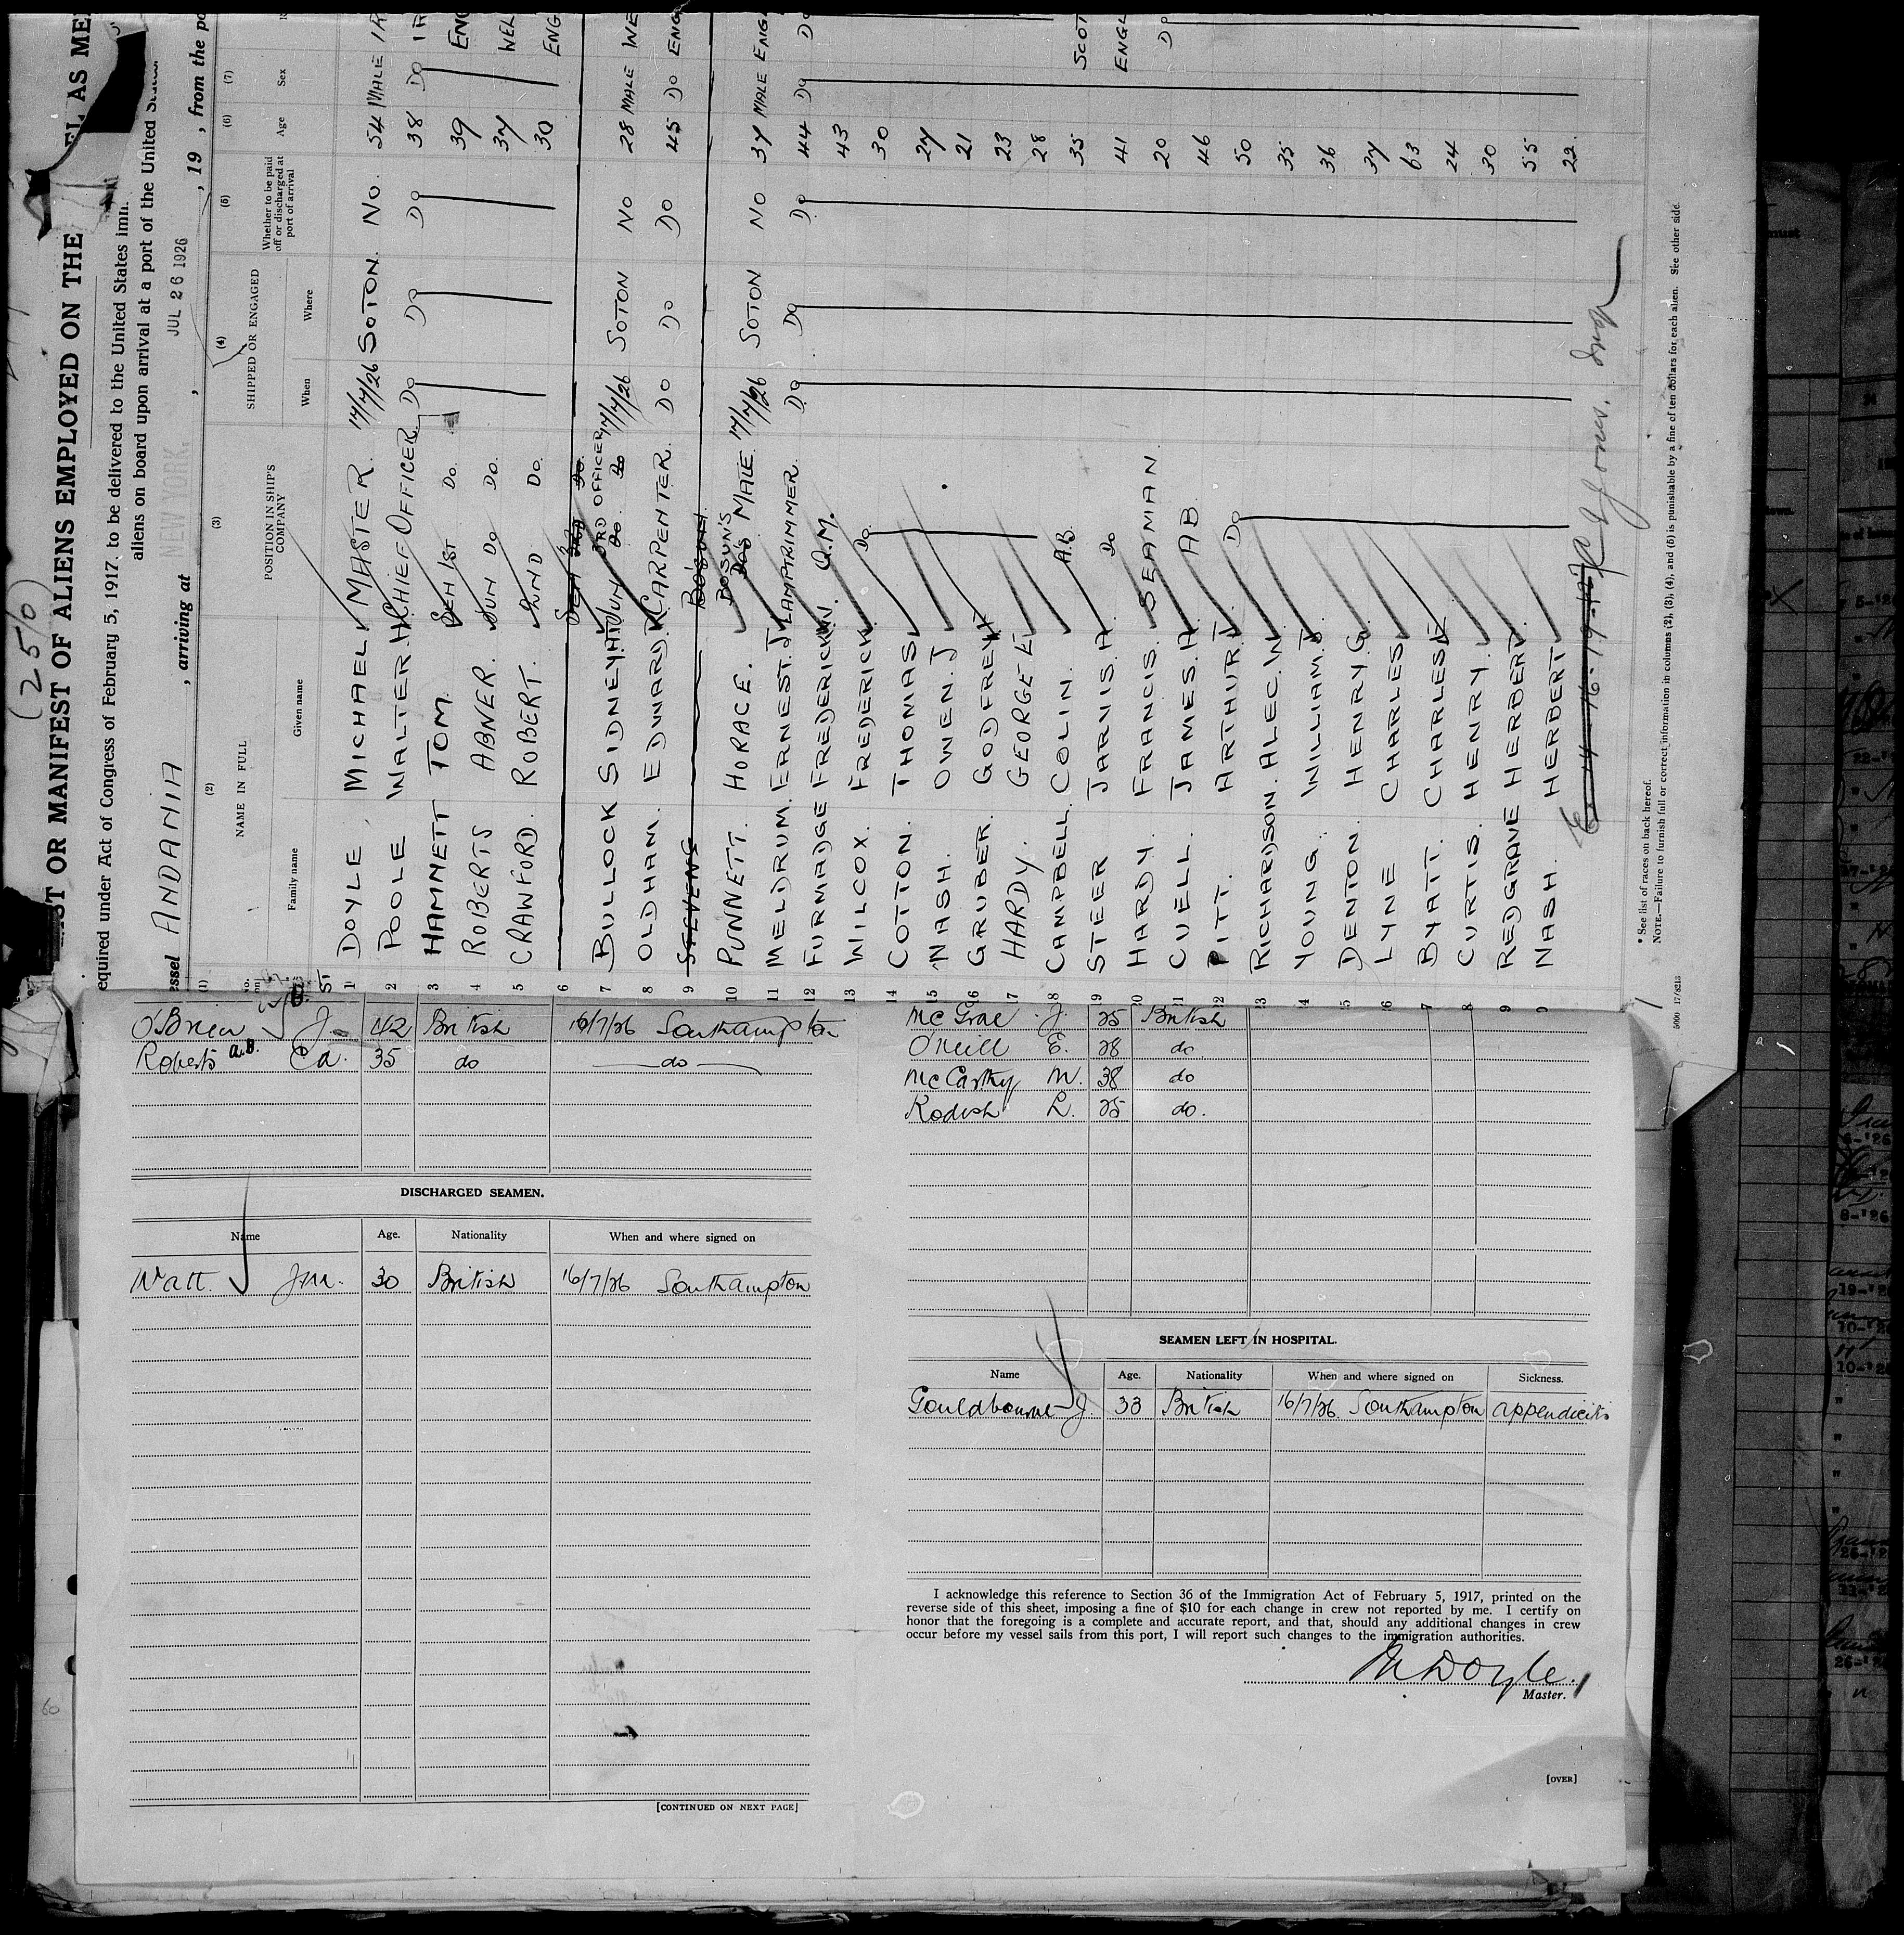 (250)
LIST OR MANIFEST OF ALIENS EMPLOYED ON THE
equired under Act of Congress of February 5, 1917, to be delivered to the United States
aliens on board upon arrival at a port of the United
essel ANDANIA , arriving at NEW YORK, , JUL 26 1926 , 19 , from the
(1) (2) (3) (4) (5) (6) (7)
NAME IN FULL POSITION IN SHIP'S COMPANY SHIPPED OR ENGAGED Whether to be paid off or discharged at port of arrival Age Sex
Family name Given name When Where
1 DOYLE MICHAEL MASTER 17/7/26 SOTON. NO. 54 MALE IR
2 POOLE WALTER.H. CHIEF OFFICER DO DO DO 38 DO IR
3 HAMNETT TOM. SEN 1ST DO. 39 ENG
4 ROBERTS ABNER. JUN DO DO. 37 WEL
5 CRAWFORD. ROBERT. 2ND DO. 30 ENG
6 SEN 3RD DO.
7 BULLOCK SIDNEY.H. JUN 3RD OFFICER DO DO 17/7/26 SOTON NO 28 MALE WE
8 OLDHAM. EDWARD.K. CARPENTER. DO DO DO 45 DO ENG
9 STEVENS BO'SUN.
10 PUNNETT. HORACE. BOSUN'S DO'S MATE. 17/7/26 SOTON NO 37 MALE ENG
11 MELDRUM. ERNEST.J. LAMPTRIMMER. DO DO DO 44 DO DO
12 FURMADGE FREDERICK.W. Q.M. 43
13 WILCOX. FREDERICK. DO 30
14 COTTON. THOMAS. 27
15 NASH. OWEN.J 21
16 GRUBER. GODFREY. 23
17 HARDY. GEORGE E. 28
18 CAMPBELL. COLIN. A.B. 35 SCOT
19 STEER JARVIS.A. DO 41 ENGL
20 HARDY. FRANCIS. SEAMAN. 20 DO
21 CUELL. JAMES.A. AB. 46
22 PITT. ARTHUR. DO 50
23 RICHARDSON. ALEC.W. 35
YOUNG. WILLIAM.J. 36
5 DENTON. HENRY.G. 37
6 LYNE CHARLES. 63
7 BYATT. CHARLES. 24
8 CURTIS. HENRY. 30
9 REDGRAVE HERBERT. 55
NASH. HERBERT. 22.
* See list of races on back hereof.
NOTE.—Failure to furnish full or correct information in columns (2), (3), (4), and (5) is punishable by a fine of ten dollars for each alien. See other side.
5000 17/8213
O'Brien J. 42 British 16/7/26 Southampton
Roberts a.B. Ed. 35 do do
DISCHARGED SEAMEN.
Name Age. Nationality When and where signed on
Watt. Jm. 30 British 16/7/26 Southampton
[CONTINUED ON NEXT PAGE]
McGrae J. 25 British
O'Neill E. 28 do
McCarthy M. 38 do
Rodish L. 25 do.
SEAMEN LEFT IN HOSPITAL.
Name Age. Nationality When and where signed on Sickness.
Gouldbourne J. 33 British 16/7/26. Southampton appendicitis
I acknowledge this reference to Section 36 of the Immigration Act of February 5, 1917, printed on the
reverse side of this sheet, imposing a fine of $10 for each change in crew not reported by me. I certify on
honor that the foregoing is a complete and accurate report, and that, should any additional changes in crew
occur before my vessel sails from this port, I will report such changes to the immigration authorities.
M Doyle.
Master.
[OVER]